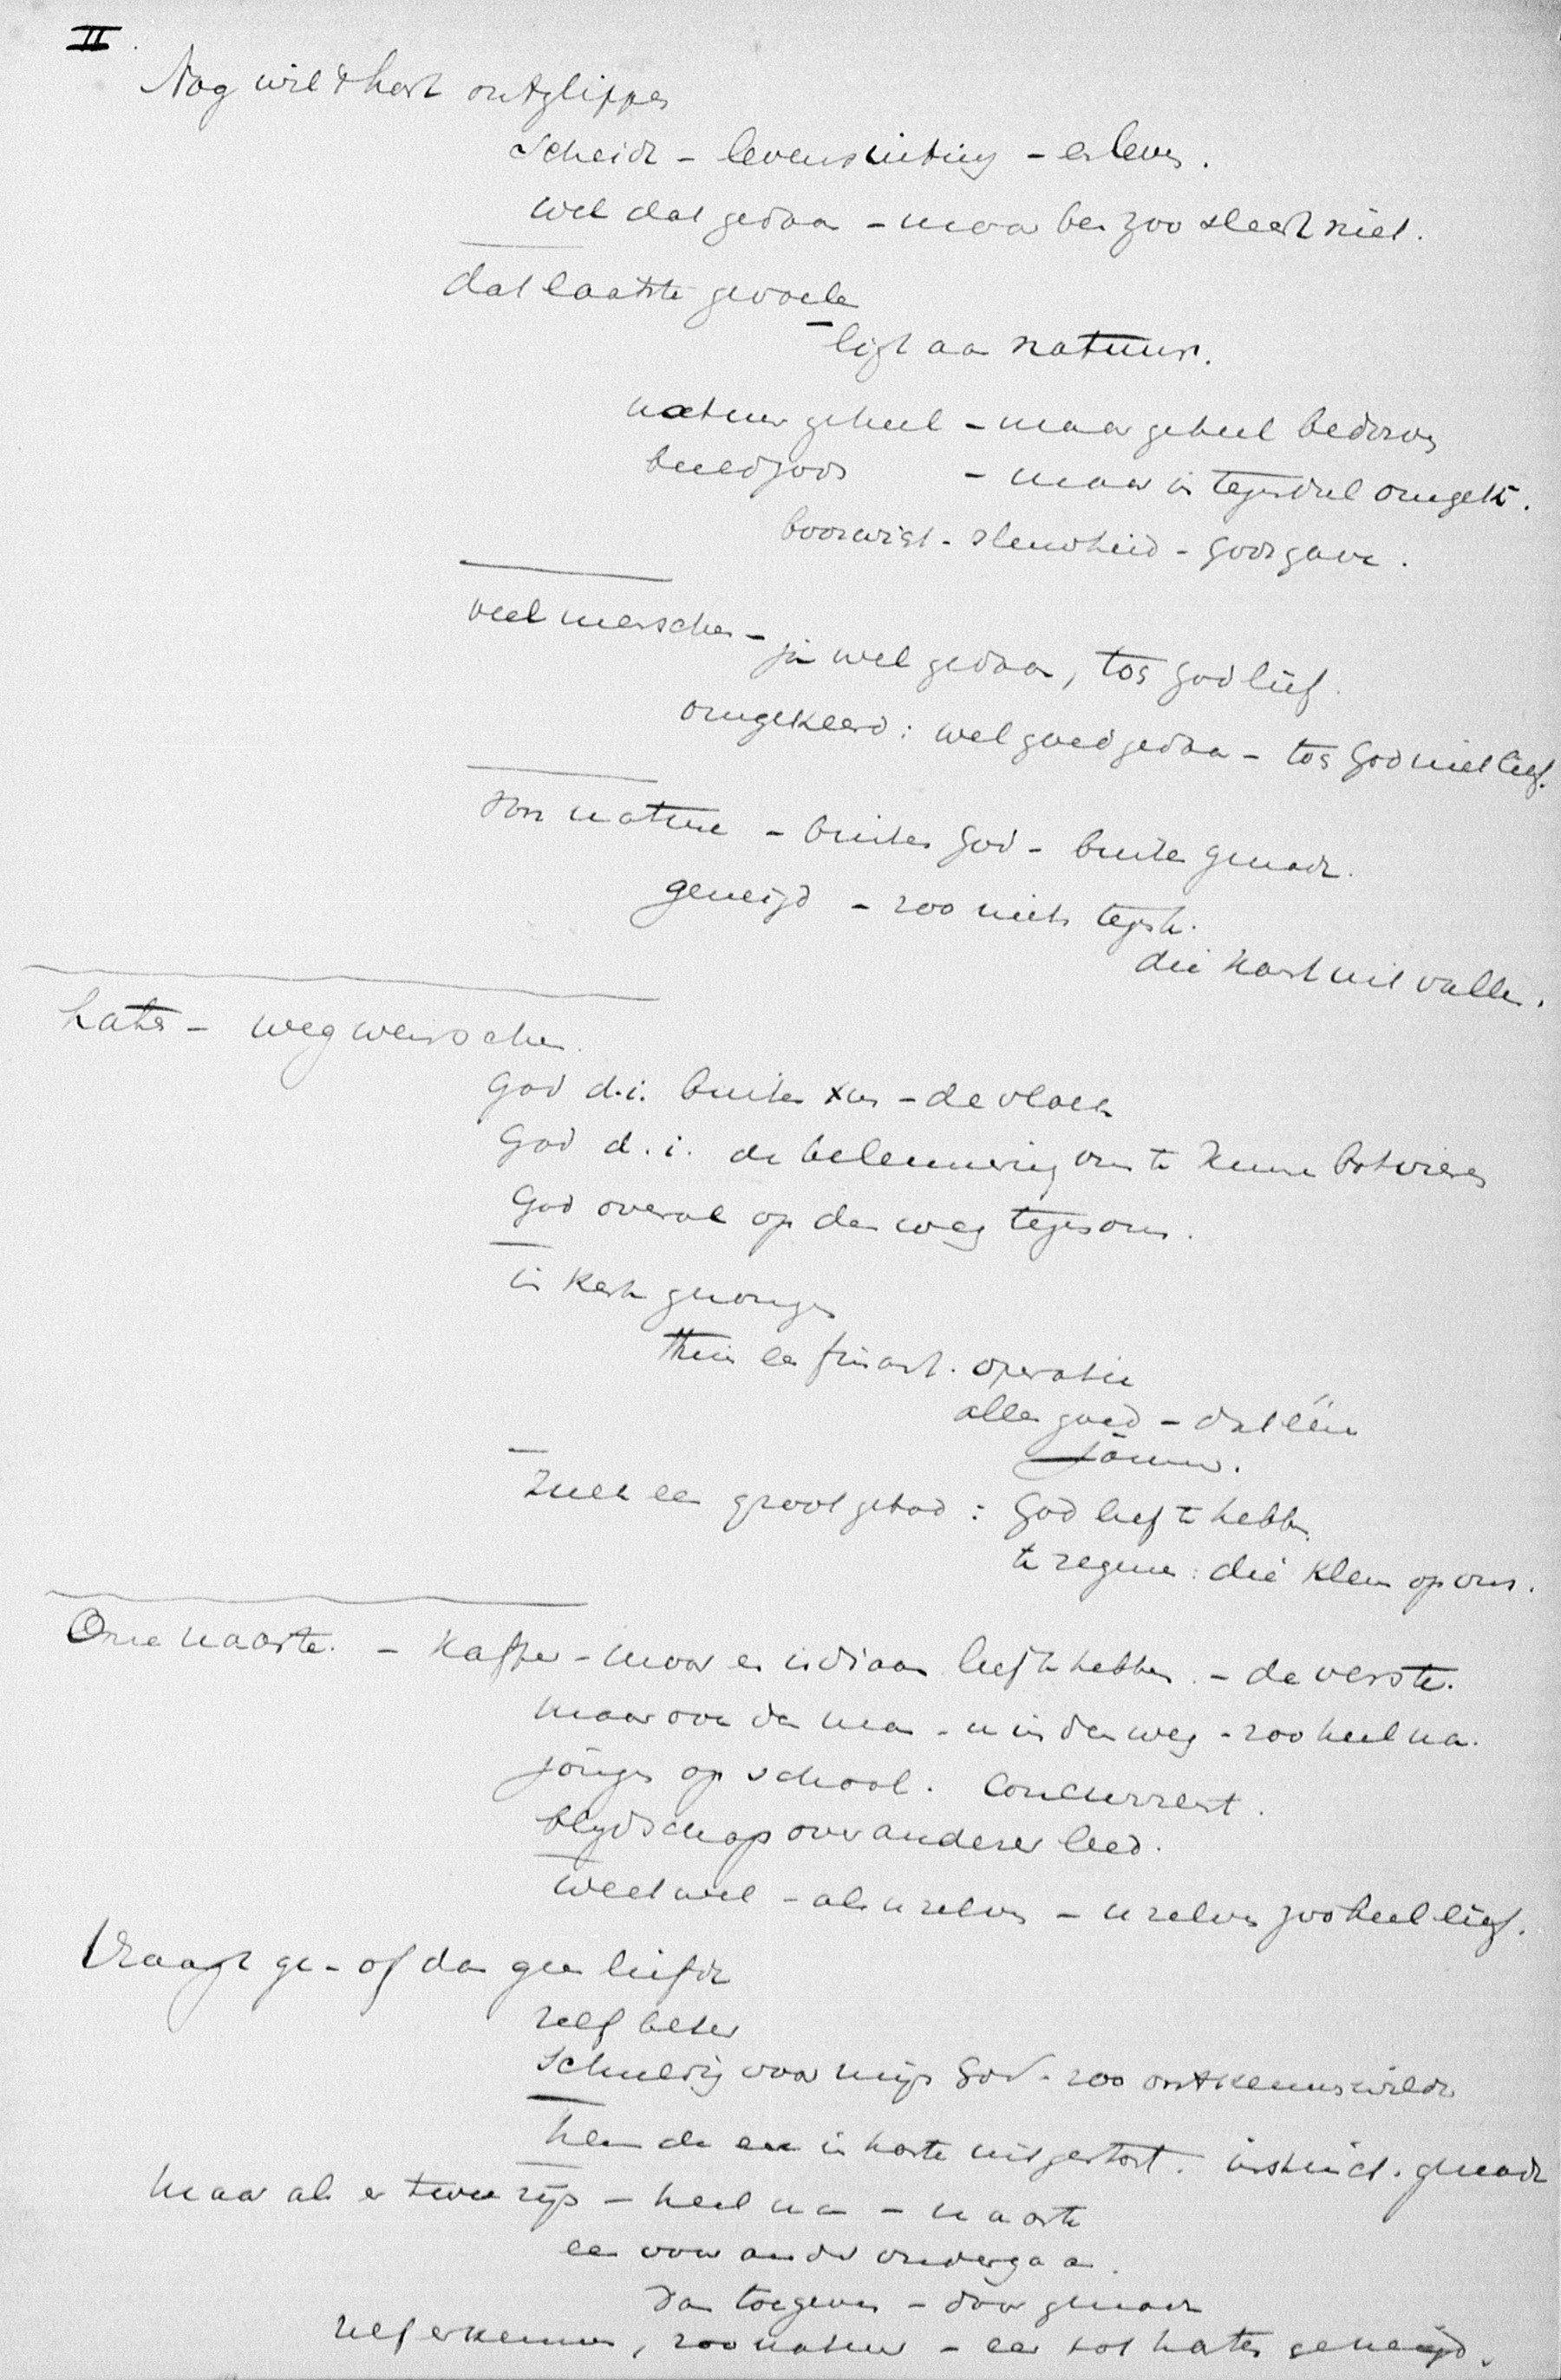 II.
Nog wil 't hart ontglippen
Scheidt - levensuiting - en leven.
wel dat gedaan - maar ben zoo slecht niet.
dat laatste gevoelen
- ligt aan natuur.
natuur geheel - maar geheel bedorven
beeld gods - maar in tegendeel omgek.
booswicht - sluwheid - godsgave.
veel menschen -
ja wel gedaan, tog god lief.
omgekeerd: wel goed gedaan - tog God niet lief.
Van nature - buiten God - buiten genade.
geneigd - zoo niets tegenh.
die kant uit vallen.
haten - wegwenschen.
God d.i. buiten Xus - de vloek
God d.i. de belemmering om te kunnen botvieren
God overal op den weg tegen ons.
in kerk gezongen
thuis een operatie
alles goed - dat één
jammer.
Zulk een groot gebod: God lief te hebben
te zegenen: die klem op ons.
Onze naaste. - Kaffer - moor en indiaan lief te hebben. - de verste.
maar over den man - u in den weg - zoo heel na.
jongens op school. Concurrent.
blijdschap over anderer leed.
weet wel - als u zelven - u zelven zoo heel lief.
Vraagt ge - of dan geen liefde
zelf beter
Schuldig voor mijn God - zoo ontkennen wilde
in harte uitgestort. instinct. genade
maar als er twee zijn - heel na - naaste
een voor ander ondergaan.
Dan toegeven - door genade
zelf erkennen, zoo natuur - een tot haten geneigd.